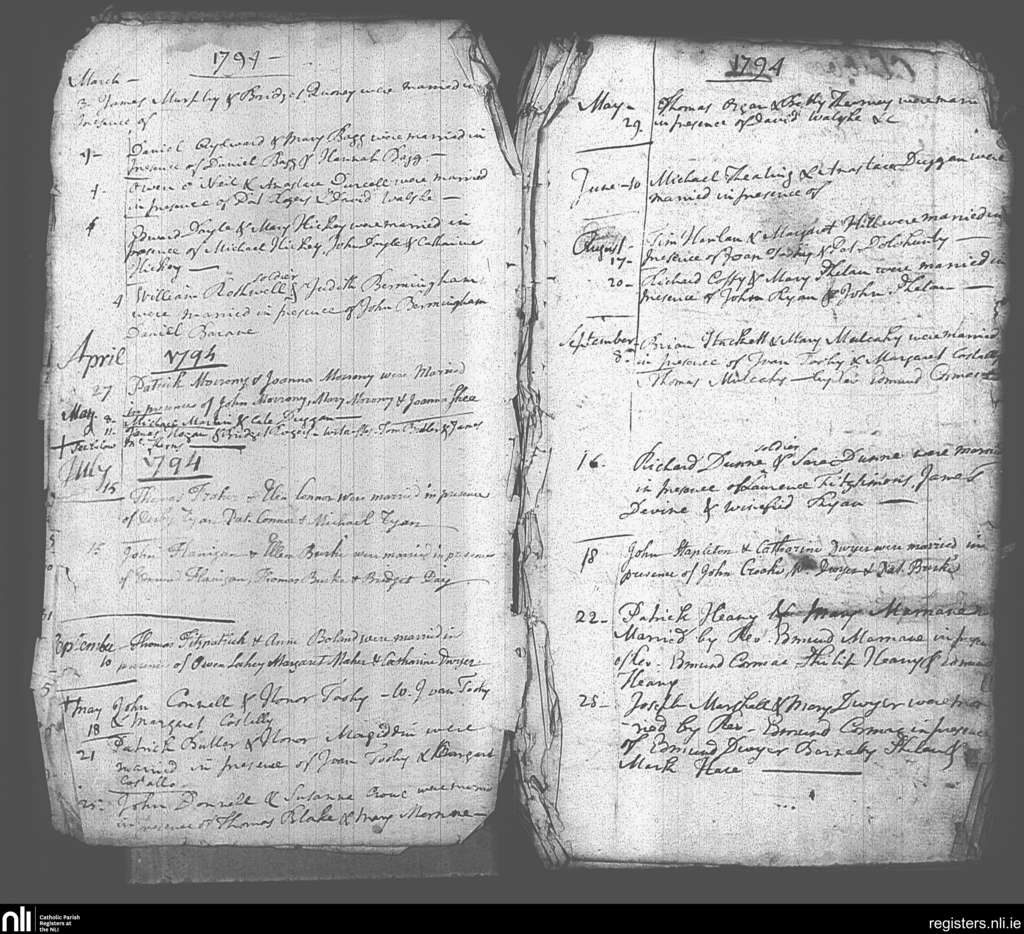 1794 -
March -
3 James Murphy & Bridget were married in
presence of
Daniel Aylward & Mary Bagg were married in
presence of Daniel Bagg & Hannah Bagg. -
4 - Owen o Neil & Anastace Purcell were married
in presence of Pat Rogers & David Walshe -
Edward Doyle & Mary Hickey were married in
presence of Michael Hickey, John Doyle & Catharine
Hickey -
soldier
4 William Rothwell & Judith Bermingham
were married in presence of John Bermingham
Daniel
April 1794
27 Patrick Morrony & Joanna Morrony were Married
in presence of John Morrony, Mary Morony & Joanna Shea
May 8 - Michael & Cate Duggan
11 - James Hogan & Bridget Rogers - Tom & James
July 1794
15 Thomas & Ellen Connor were married in presence
of Ryan Pat. Connor & Michael Ryan
15 John Flanigan & Ellen Burke were married in presence
of Edmund Flanigan, Thomas Burke & Bridget Day
September Thomas Fitzpatrick & Anne Boland were married in
10 presence of Owen Lahey Margaret Maher & Catharine Dwyer
May John Connell & Honor Toohy - W. Joan Toohy
18 & Margaret Costelly
21 Patrick Butler & Honor were
married in presence of Joan Toohy & Margaret
Costallo
25 - John Donnell & Susanna were married
in presence of Thomas Blake & Mary Mornane -
1794
May - Thomas & Betty were marri
29. in presence of David Walshe &c
June - 10 Michael & Anastace Duggan were
married in presence of
August - Tim Hanlan & Margaret Hill were married in
17 - presence of Joan Toohy & Pat
20 - Richard Coffy & Mary Phelan were married in
presence of John Ryan & John Phelan -
September - Brian Hackett & Mary Mulcahy were married
8 - in presence of Joan Toohy & Margaret Costally
Thomas Mulcahy - Edmund Cormac
soldier
16. Richard Dunne & Sara Dunne were married
in presence of Laurence Fitzsimons, James
Devine & Winefred Ryan -
18 John Stapleton & Catharine Dwyer were married in
presence of John Crooke, Wm Dwyer & Pat. Burke
22 - Patrick Heany & Mary Murnane
Married by Rev. Edmund Mornane in presence
of Rev. Edmund Cormac Philip Heany & Edmund
Heany
25 - Joseph Marshall & Mary Dwyer were mar
ried by Rev - Edmund Cormac in presence
of Edmund Dwyer Barnaby Phelan &
Mark Hare
nli Catholic Parish
Registers at
the NLI
registers.nli.ie